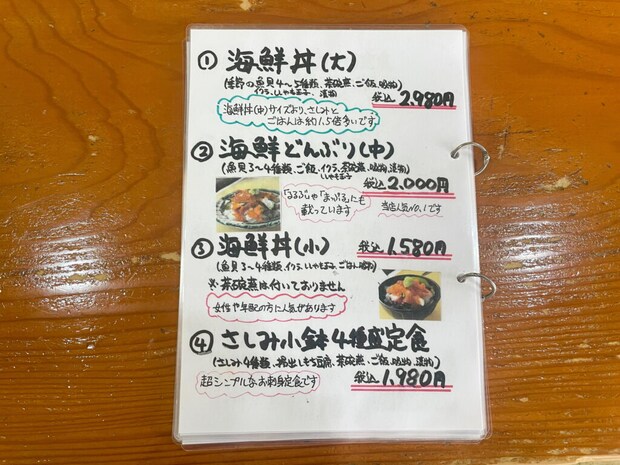 ① 海鮮丼(大)
(季節の魚貝4〜5種類、茶碗蒸、ご飯、吸物)
イクラ、ししゃも玉子、漬物
税込 2,980円
海鮮丼(中)サイズより、さしみと
ごはんは約1.5倍多いです
② 海鮮どんぶり(中)
(魚貝3〜4種類、ご飯、イクラ、茶碗蒸、吸物、漬物)
ししゃも玉子
税込 2,000円
「るるぶ」や「まっぷる」にも
載っています
当店人気No.1です
③ 海鮮丼(小) 税込 1,580円
(魚貝3〜4種類、イクラ、ししゃも玉子、ごはん、吸物)
※茶碗蒸は付いておりません
女性や年配の方に人気があります
④ さしみ小鉢4種盛定食
(さしみ4種類、揚出しもち豆腐、茶碗蒸、ご飯、吸物、漬物)
税込 1,980円
超シンプルなお刺身定食です